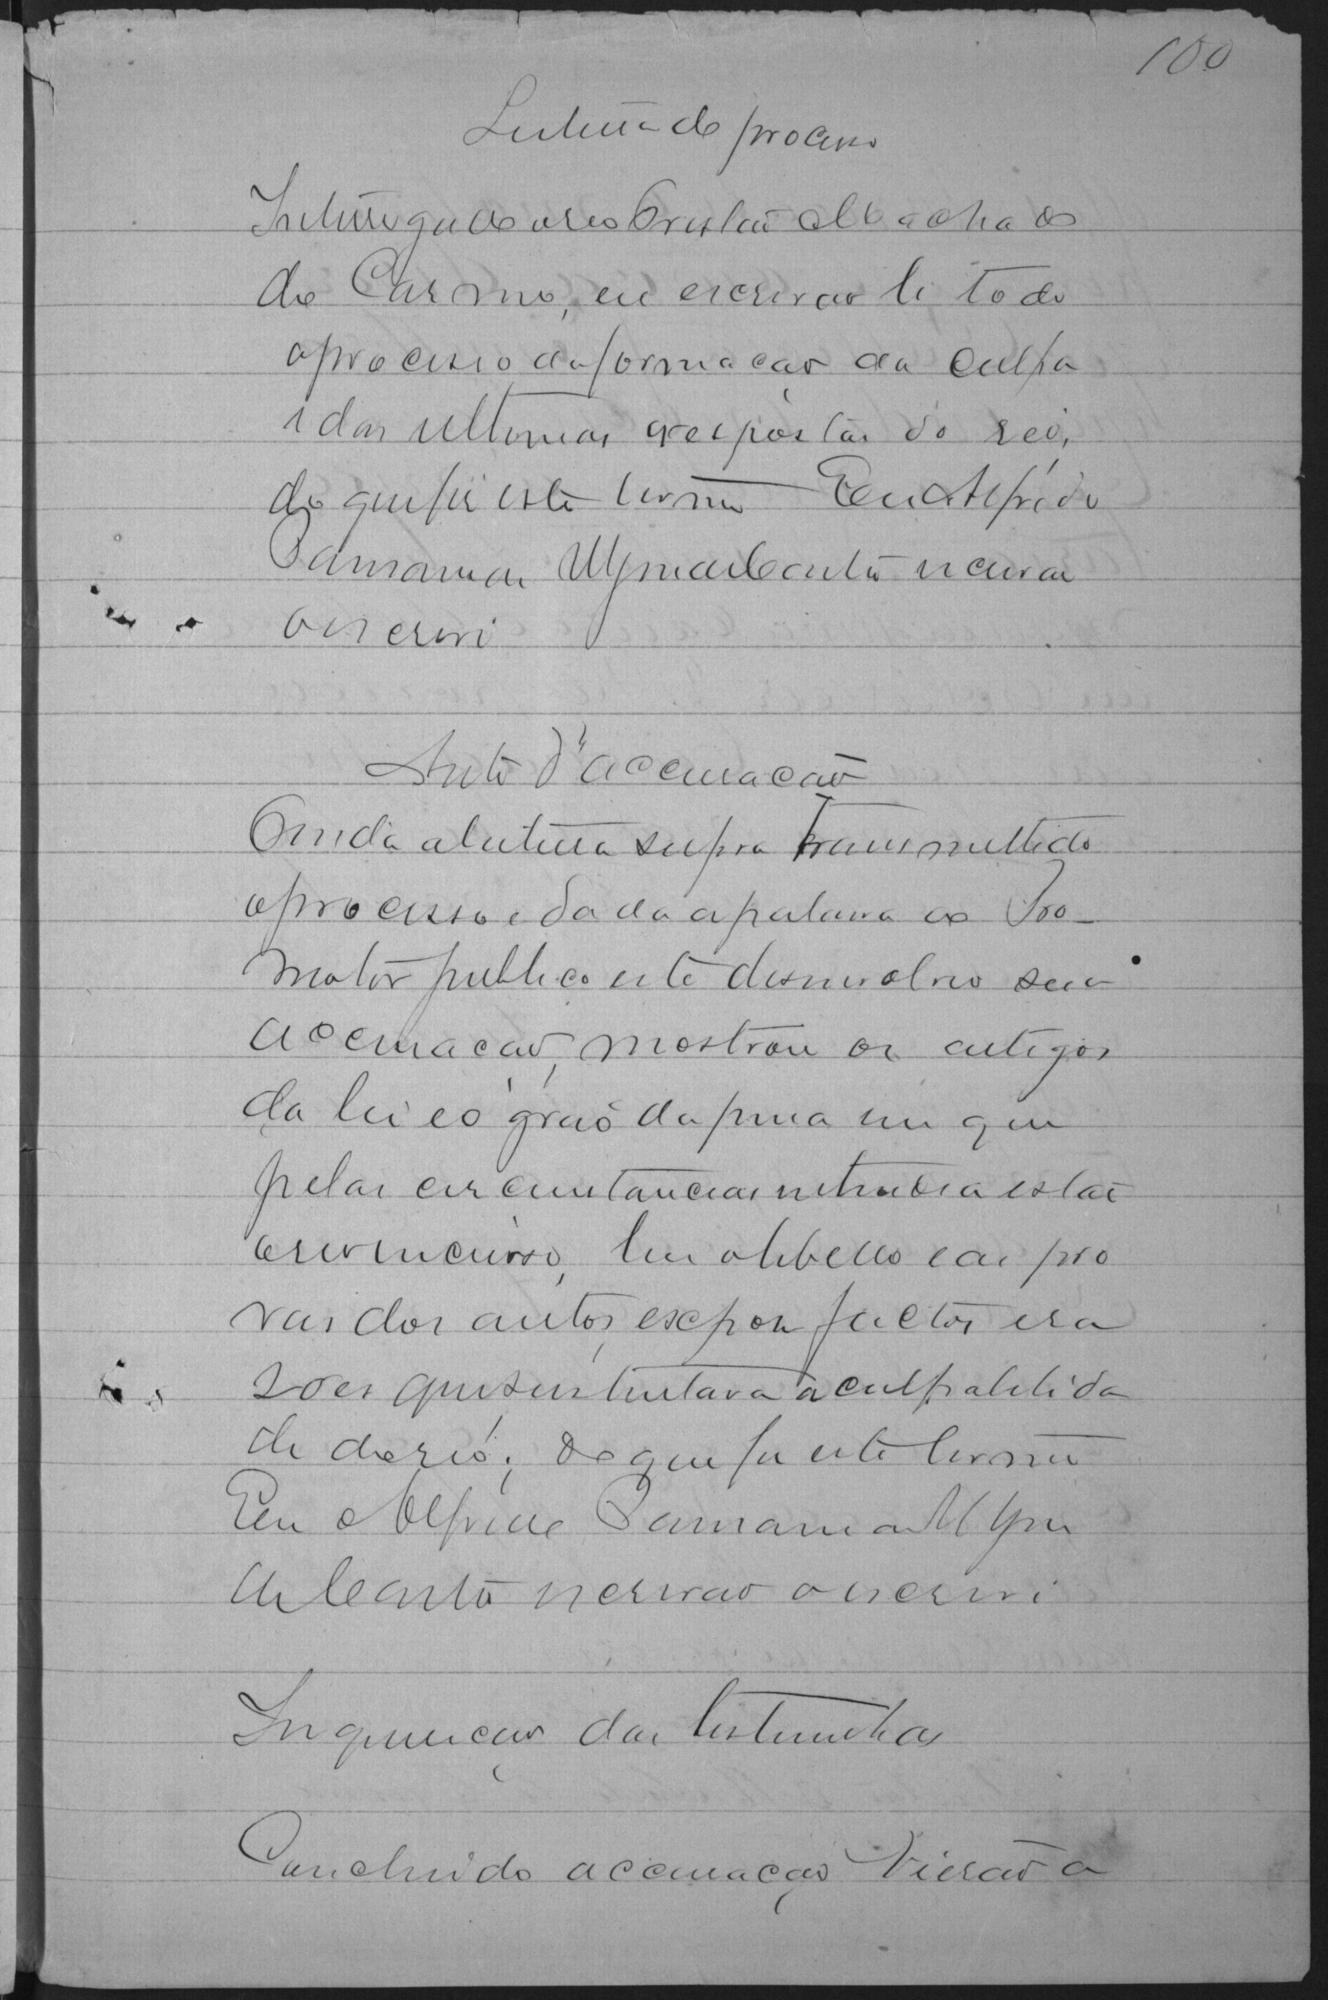 100
Leitura do processo
Interrogado o reo Tristão Machado
do Carmo, eu escrivão li todo
o processo da formação da culpa
e das ultimas respostas do reo,
do que fiz este termo Eu Alfredo
escrivão
o escrevi
Auto d'accusação
Finda a leitura supra transmittido
o processo e dada a palavra ao Pro-
motor publico este desenvolveu sua
accusação, mostrou os artigos
da lei e o gráo da pena em que
pelas circunstancias entendia estar
o reo incurso, leu o libello e as pro
vas dos autos, expoz factos e ra
zoes que sustentava a culpabilida
de do reo; do que fiz este termo
Eu Alfredo
escrivão o escrevi
Inquirição das testemunhas
Concluido accusação vierão a